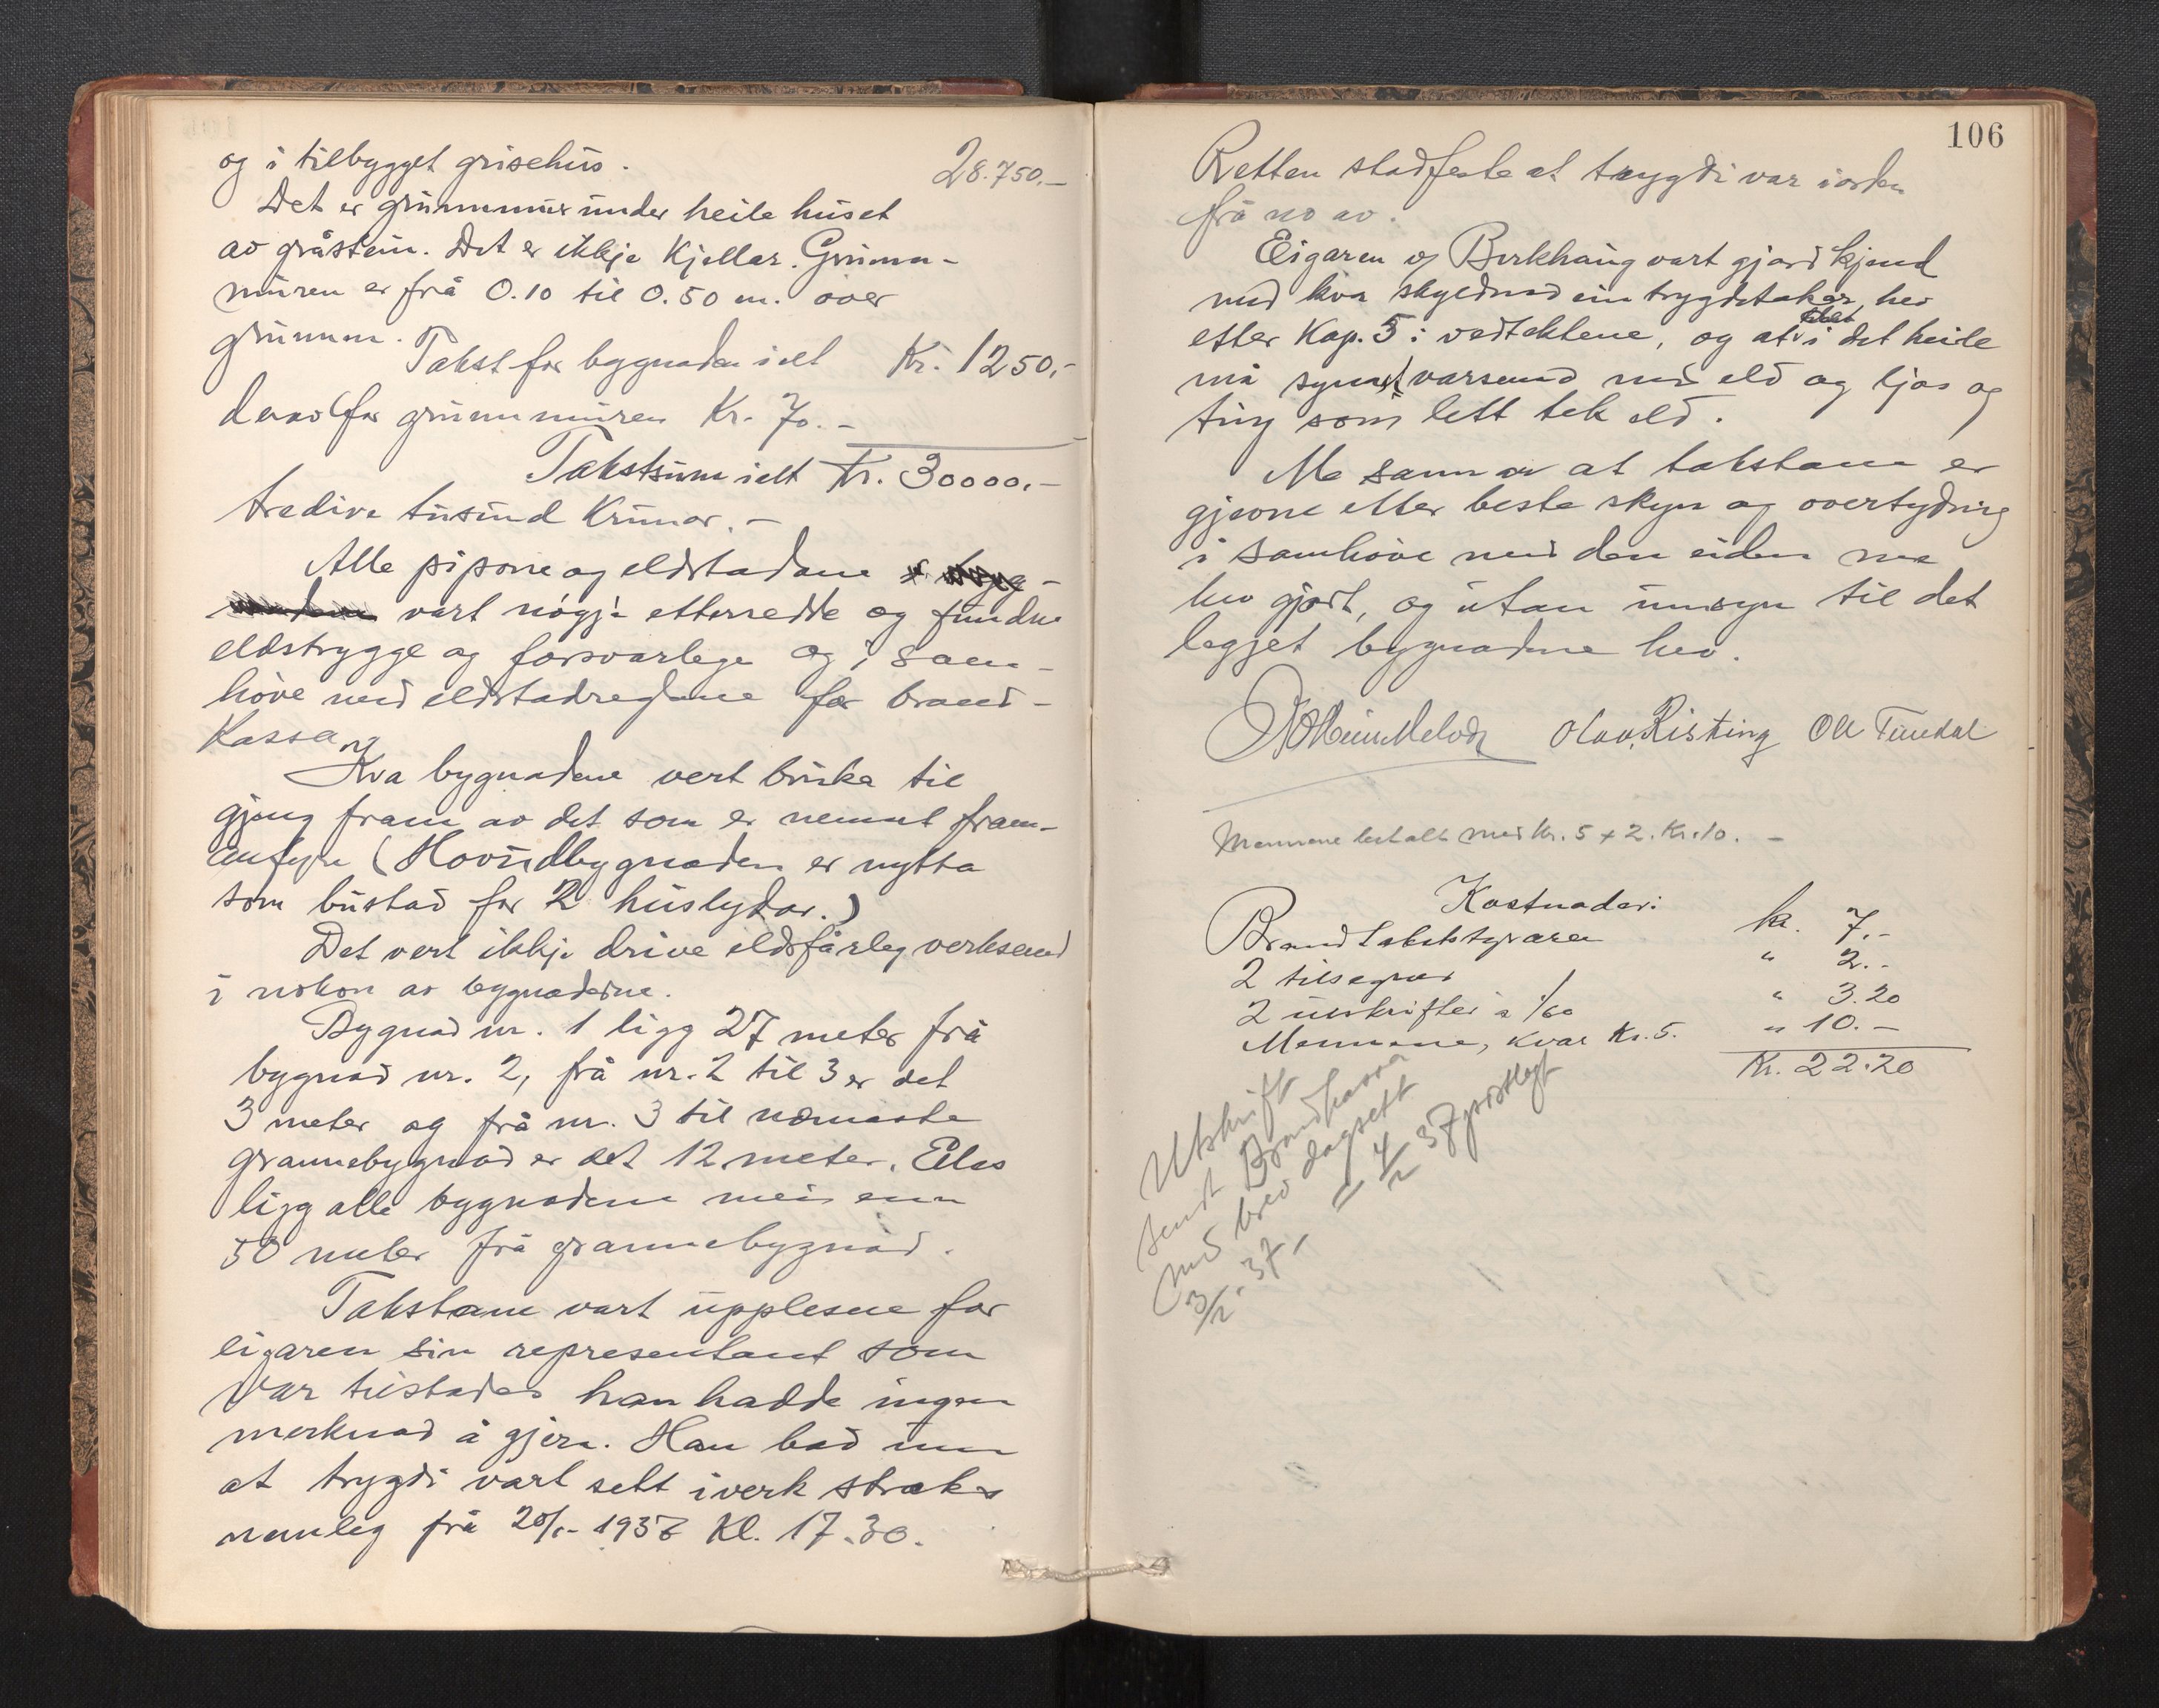 og i tilbygget grisehus. 28.750.-
Det er grunnmur under heile huset
av gråstein. Det er ikkje Kjellar. Grunn-
muren er frå 0.10 til 0.50 m. over
grunnen.
Takst for bygnaden i alt Kr. 1250,-
derav for grunnmuren Kr. 70.-
Takstsum i alt Kr. 30000.-
tredive tusund Krunor.-
Alle pipone og eldstadane
vart nøgje etterredde og fundne
eldstrygge og forsvarlege og i sam-
høve med eldstadreglane for brand-
Kassa.
Kva bygnadene vert bruka til
gjeng fram av det som er nemnt fram-
anfyre (Hovudbygnaden er nytta
som bustad for 2 huslydar.)
Det vert ikkje drive eldsfårleg verksemd
i nokon av bygnaderne.
Bygnad nr. 1 ligg 27 meter frå
bygnad nr. 2, frå nr. 2 til 3 er det
3 meter og frå nr. 3 til næmaste
grannebygnad er det 12 meter. Elles
ligg alle bygnadene meir enn
50 meter frå grannebygnad.
Takstane vart upplesne for
eigaren sin representant som
var tilstades han hadde ingen
merknad å gjera. Han bad um
at trygdi vart sett i verk straks
nemleg frå 20/1- 1937 Kl. 17.30.
106
Retten stadfeste at trygdi var i orden
frå no av.
Eigaren v/ Birkhaug vart gjord kjend
med kva skyldnad ein trygdetakar hev
etter Kap. 5 i vedtektene, og at i det heile
må synast varsemd med eld og ljos og
ting som lett tek eld.
Me sannar at takstane er
gjevne etter beste skyn og overtydning
i samhøve med den eiden me
hev gjort, og utan umsyn til det
legjet bygnadene hev.
Olav Risting Ole Tundal
Mennene betalt med Kr. 5 + 2. Kr. 10.-
Kostnader:
Brandtakststyraren kr. 7.-
2 tilsegner " 2.-
2 utskrifter a 1/60 " 3.20
Mennene, kvar Kr. 5. " 10.-
Kr. 22.20
Utskrift
sendt Brandkassa
med brev dagsett
3/2.37.- = 4/2 37 postlagt